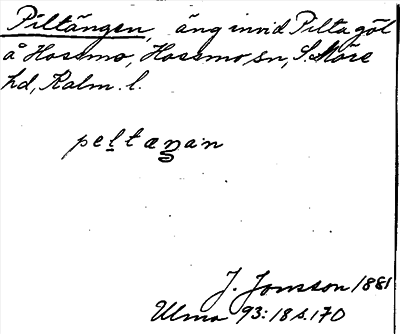 Piltängen, äng invid Pilta göl
å Hossmo, Hossmo sn, S. Möre
hd, Kalm. l.
peltæŋan
J. Jonsson 1881
Ulma 93:18 s. 170